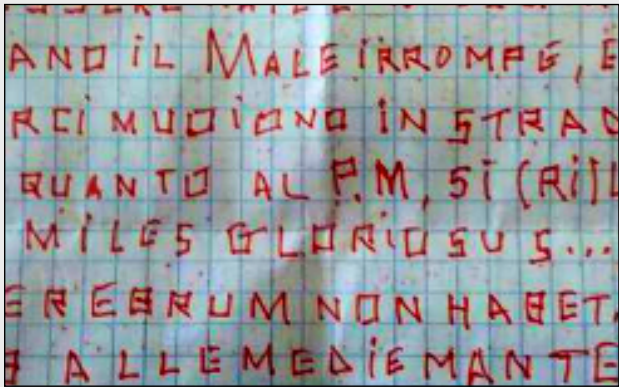 IL MALE IRROMPE, E
RCI MUOIONO IN STRAD
QUANTO AL P.M, SI (RI)L
MILES GLORIOSUS...
EREBRUM NON HABET.
ALLE MEDIE MANTE